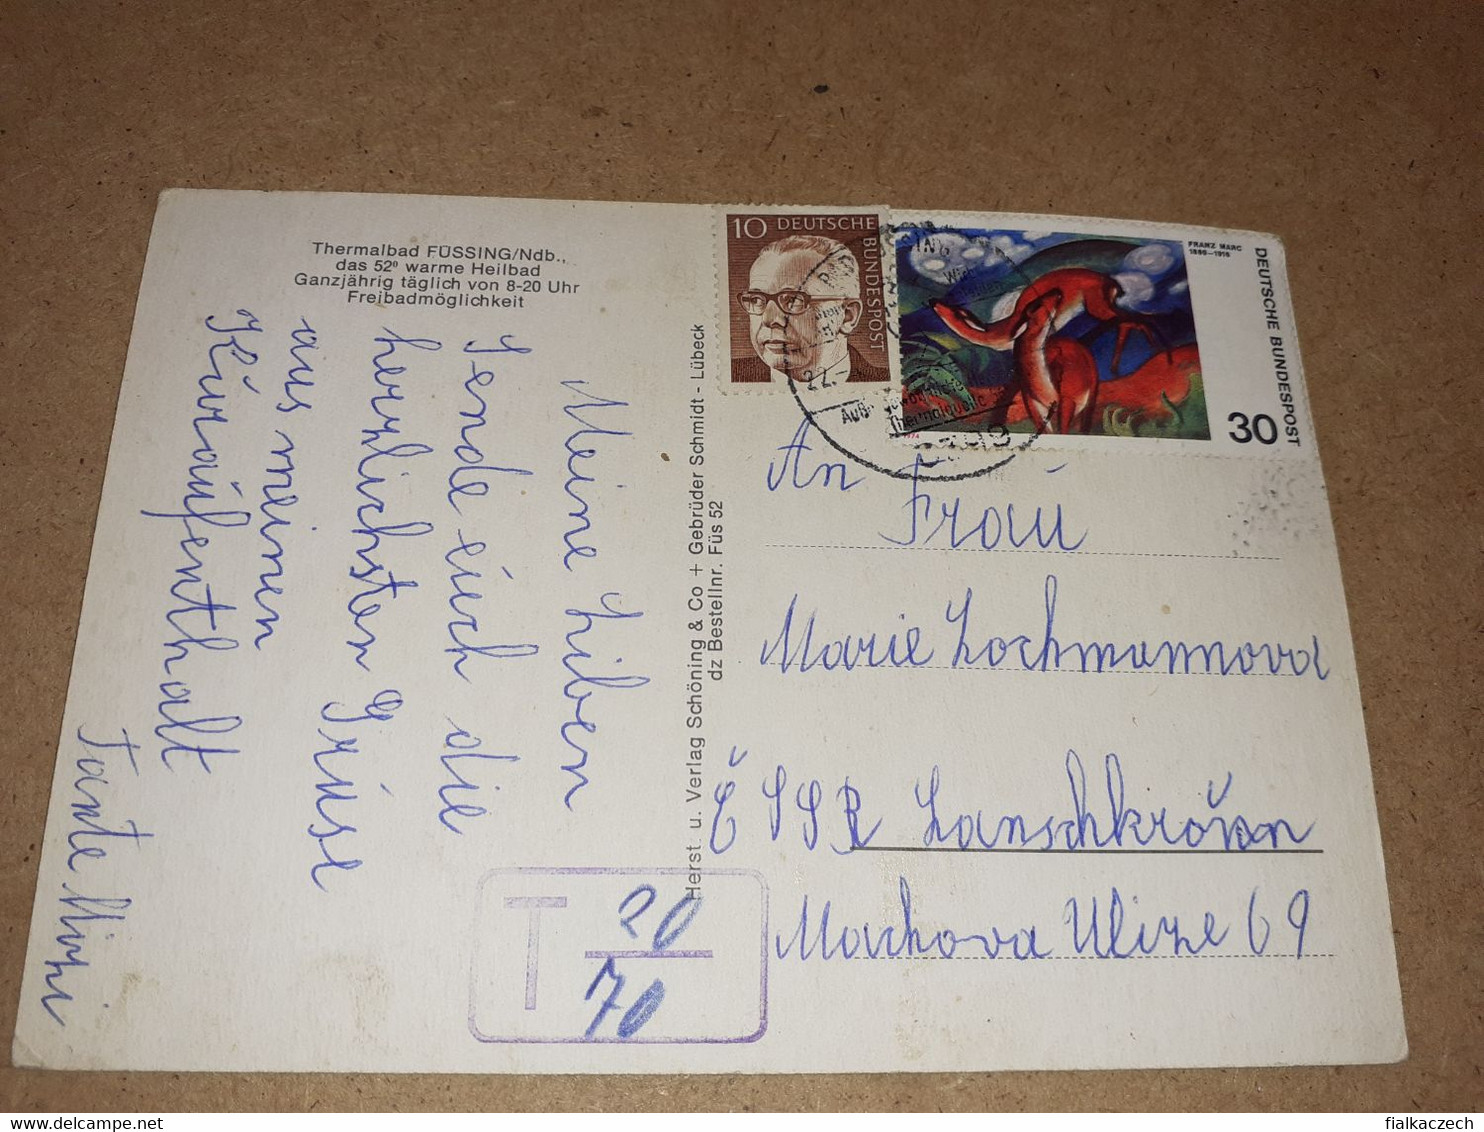 Thermalbad FÜSSING/Ndb.,
das 52º warme Heilbad
Ganzjährig täglich von 8-20 Uhr
Freibadmöglichkeit
Meine Liben
Sende euch die
herzlichsten Grüse
aus meinen
Kuraufenthalt
Tante Mizi
Herst. u. Verlag Schöning & Co + Gebrüder Schmidt - Lübeck
dz Bestellnr. Füs 52
10 DEUTSCHE
BUNDESPOST
FRANZ MARC
1880-1916
DEUTSCHE BUNDESPOST
30
22.
Thermalquelle
An Frau
Marie Lochmannova
ČSSR Lanschkroun
Machova Ulize 69
T 20
70
delcampe.net
fialkaczech